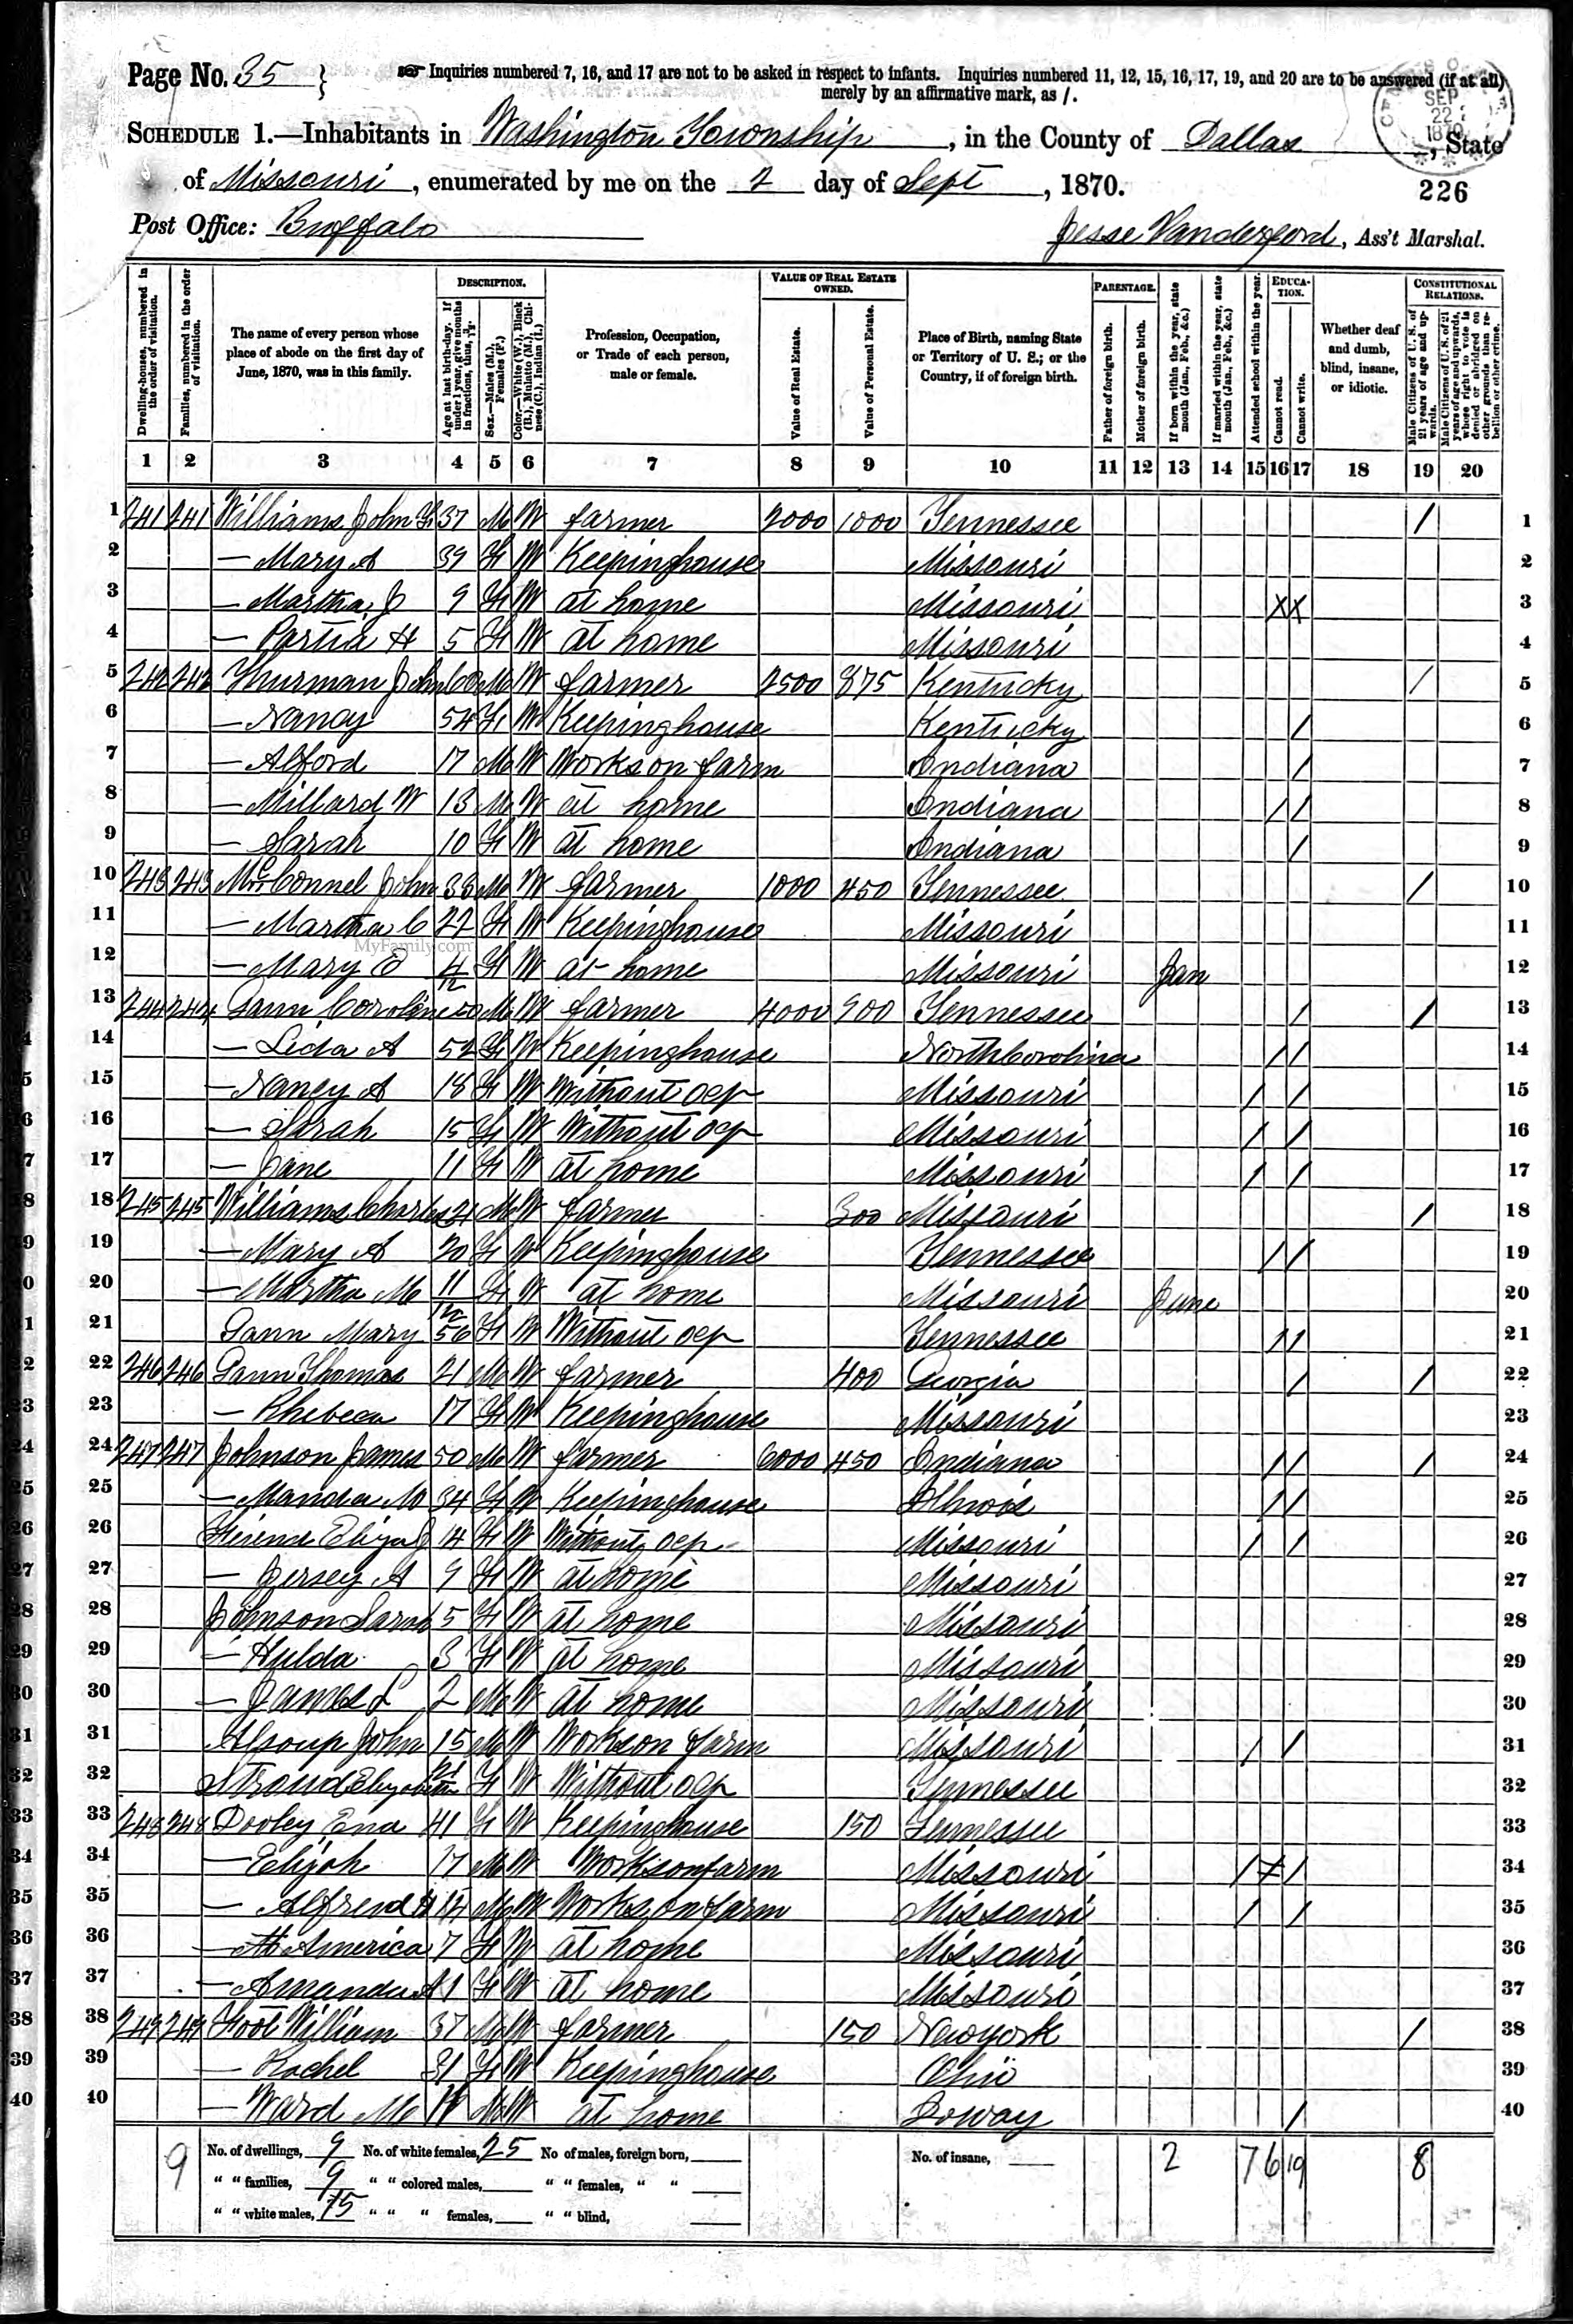 Page No. 35 } Inquiries numbered 7, 16, and 17 are not to be asked in respect to infants. Inquiries numbered 11, 12, 15, 16, 17, 19, and 20 are to be answered (if at all)
merely by an affirmative mark, as /.
SEP 22 1870
SCHEDULE 1.—Inhabitants in Washington Township, in the County of Dallas, State
of Missouri, enumerated by me on the 2 day of Sept, 1870.
226
Post Office: Buffalo
Jesse Vanderford, Ass't Marshal.
Dwelling-houses, numbered in the order of visitation.
Families, numbered in the order of visitation.
The name of every person whose place of abode on the first day of June, 1870, was in this family.
DESCRIPTION.
Age at last birth-day. If under 1 year, give months in fractions, thus, 3/12.
Sex.—Males (M.), Females (F.)
Color.—White (W.), Black (B.), Mulatto (M.), Chinese (C.), Indian (I.)
Profession, Occupation, or Trade of each person, male or female.
VALUE OF REAL ESTATE OWNED.
Value of Real Estate.
Value of Personal Estate.
Place of Birth, naming State or Territory of U. S.; or the Country, if of foreign birth.
PARENTAGE.
Father of foreign birth.
Mother of foreign birth.
If born within the year, state month (Jan., Feb., &c.)
If married within the year, state month (Jan., Feb., &c.)
Attended school within the year.
EDUCATION.
Cannot read.
Cannot write.
Whether deaf and dumb, blind, insane, or idiotic.
CONSTITUTIONAL RELATIONS.
Male Citizens of U. S. of 21 years of age and upwards.
Male Citizens of U. S. of 21 years of age and upwards, whose right to vote is denied or abridged on other grounds than rebellion or other crime.
1 2 3 4 5 6 7 8 9 10 11 12 13 14 15 16 17 18 19 20
1 241 241 Williams John F 37 M W farmer 2000 1000 Tennessee / 1
2 — Mary A 39 F W Keepinghouse Missouri 2
3 — Martha J 9 F W at home Missouri X X 3
4 — Partia H 5 F W at home Missouri 4
5 242 242 Thurman John 60 M W farmer 2500 875 Kentucky / 5
6 — Nancy 54 F W Keepinghouse Kentucky / 6
7 — Alford 17 M W Works on farm Indiana / 7
8 — Millard W 13 M W at home Indiana / / 8
9 — Sarah 10 F W at home Indiana / 9
10 243 243 McConnel John 33 M W farmer 1000 450 Tennessee / 10
11 — Martha C 22 F W Keepinghouse Missouri 11
MyFamily.com
12 — Mary E 4/12 F W at home Missouri Jan 12
13 244 244 Gann Caroline 50 M W farmer 4000 900 Tennessee / / 13
14 — Lida A 52 F W Keepinghouse North Carolina / / 14
15 — Nancy A 18 F W Without ocp Missouri / / 15
16 — Sarah 15 F W Without ocp Missouri / / 16
17 — Jane 11 F W at home Missouri / / 17
18 245 245 Williams Charles 21 M W farmer 300 Missouri / 18
19 — Mary A 20 F W Keepinghouse Tennessee / / 19
20 — Martha M 11/12 F W at home Missouri June 20
21 Gann Mary 56 F W Without ocp Tennessee / / 21
22 246 246 Gann Thomas 21 M W farmer 400 Georgia / / 22
23 — Rhebeca 17 F W Keepinghouse Missouri 23
24 247 247 Johnson James 50 M W farmer 6000 450 Indiana / / / 24
25 — Manda M 34 F W Keepinghouse Illinois / / 25
26 Eliza J 14 F W Without ocp Missouri / / 26
27 — Jersey A 9 F W at home Missouri 27
28 Johnson Sarah 5 F W at home Missouri 28
29 — Hulda 3 F W at home Missouri 29
30 — James L 2 M W at home Missouri 30
31 Alsoup John 15 M W Works on farm Missouri / / 31
32 Stroud Elizabeth 21 F W Without ocp Tennessee 32
33 248 248 Dooley Ena 41 F W Keepinghouse 150 Tennessee 33
34 — Elijah 17 M W Works on farm Missouri / / / 34
35 — Alfred H 14 M W Works on farm Missouri / / 35
36 — America 7 F W at home Missouri 36
37 — Amanda A 1 F W at home Missouri 37
38 249 249 Foot William 37 M W farmer 150 New york / 38
39 — Rachel 31 F W Keepinghouse Ohio 39
40 — Ward M M W at home Ioway / 40
9 No. of dwellings, 9 No. of white females, 25 No of males, foreign born, No. of insane, 2 7 6 19 8
" " families, 9 " " colored males, " " females, " "
" " white males, 15 " " " females, " " blind,